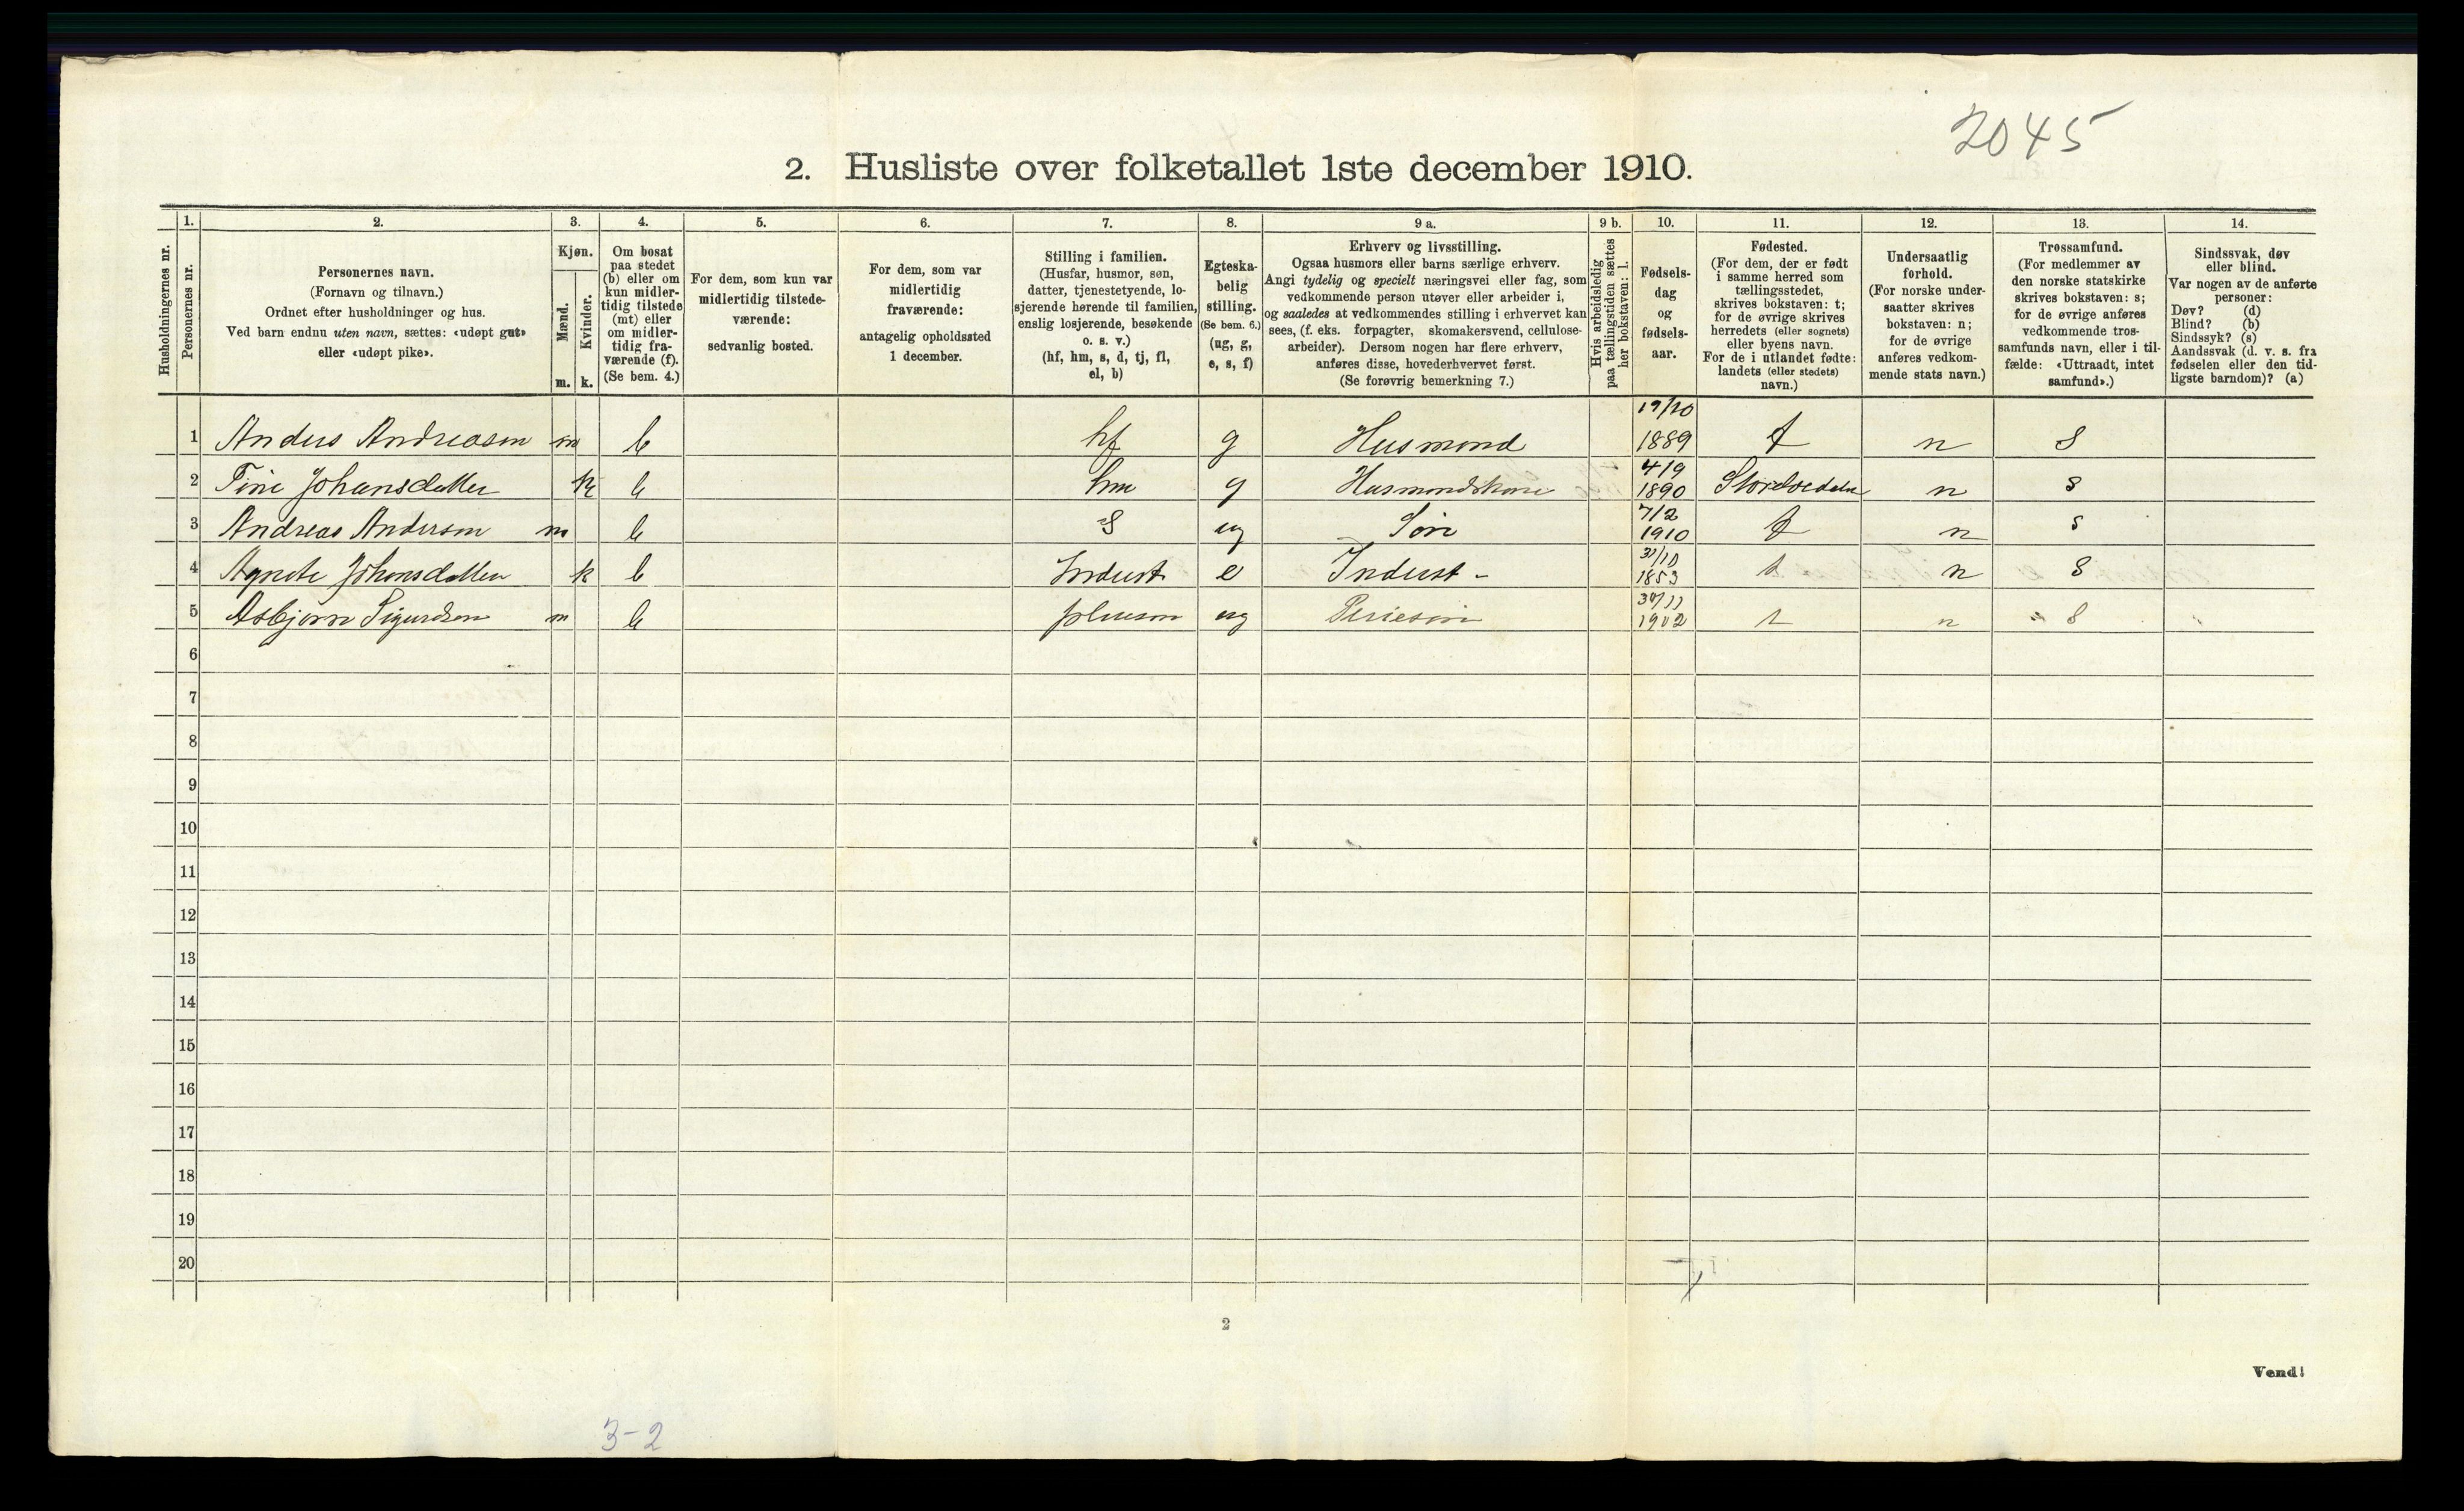 2045
2. Husliste over folketallet 1ste december 1910.
Husholdningernes nr.
1. Personernes nr.
2. Personernes navn.
(Fornavn og tilnavn.)
Ordnet efter husholdninger og hus.
Ved barn endnu uten navn, sættes: «udøpt gut»
eller «udøpt pike».
3. Kjøn.
Mænd. m.
Kvinder. k.
4. Om bosat
paa stedet
(b) eller om
kun midler-
tidig tilstede
(mt) eller
om midler-
tidig fra-
værende (f).
(Se bem. 4.)
5. For dem, som kun var
midlertidig tilstede-
værende:
sedvanlig bosted.
6. For dem, som var
midlertidig
fraværende:
antagelig opholdssted
1 december.
7. Stilling i familien.
(Husfar, husmor, søn,
datter, tjenestetyende, lo-
sjerende hørende til familien,
enslig losjerende, besøkende
o. s. v.)
(hf, hm, s, d, tj, fl,
el, b)
8. Egteska-
belig
stilling.
(Se bem. 6.)
(ug, g,
e, s, f)
9 a. Erhverv og livsstilling.
Ogsaa husmors eller barns særlige erhverv.
Angi tydelig og specielt næringsvei eller fag, som
vedkommende person utøver eller arbeider i,
og saaledes at vedkommendes stilling i erhvervet kan
sees, (f. eks. forpagter, skomakersvend, cellulose-
arbeider). Dersom nogen har flere erhverv,
anføres disse, hovederhvervet først.
(Se forøvrig bemerkning 7.)
9 b. Hvis arbeidsledig
paa tællingstiden sættes
her bokstaven: l.
10. Fødsels-
dag
og
fødsels-
aar.
11. Fødested.
(For dem, der er født
i samme herred som
tællingsstedet,
skrives bokstaven: t;
for de øvrige skrives
herredets (eller sognets)
eller byens navn.
For de i utlandet fødte:
landets (eller stedets)
navn.)
12. Undersaatlig
forhold.
(For norske under-
saatter skrives
bokstaven: n;
for de øvrige
anføres vedkom-
mende stats navn.)
13. Trossamfund.
(For medlemmer av
den norske statskirke
skrives bokstaven: s;
for de øvrige anføres
vedkommende tros-
samfunds navn, eller i til-
fælde: «Uttraadt, intet
samfund».)
14. Sindssvak, døv
eller blind.
Var nogen av de anførte
personer:
Døv? (d)
Blind? (b)
Sindssyk? (s)
Aandssvak (d. v. s. fra
fødselen eller den tid-
ligste barndom)? (a)
1 Anders Andreasen m b hf g Husmand 19/10 1889 t n s
2 Tine Johansdatter k b hm g Husmandskone 4/9 1890 n s
3 Andreas Andersen m b s ug Søn 7/2 1910 t n s
4 Agnete Johansdatter k b Inderst e Inderst - 31/10 1853 t n s
5 Asbjørn Sigurdsen m b pleiesøn ug Pleiesøn 30/11 1902 t n s
6
7
8
9
10
11
12
13
14
15
16
17
18
19
20
2
Vend!
3-2